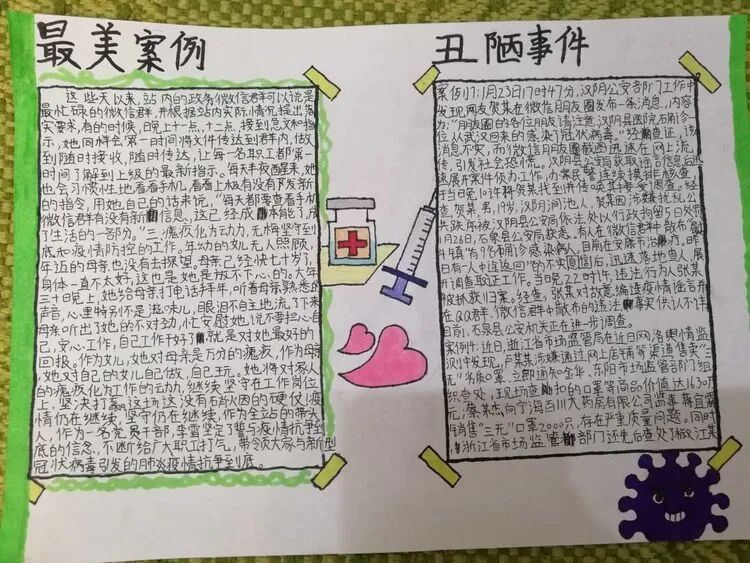 最美案例
这些天以来,站内的政务微信群可以说是
最忙碌的微信群,并根据站内实际情况提出落
实要求,有的时候,晚上十一点、十二点,接到急文和指
示,她同样会第一时间将文件传达到群内,做
到随时接收,随时传达,让每一名职工都第一
时间了解到上级的最新指示。每天半夜醒来,她
也会习惯性地看看手机,看看上级有没有下发新
的指令,用她自己的话来说,“每天都要查看手机
微信群有没有新信息,这已经成本能了,成
了生活的一部分。”三、愧疚化为动力,无悔坚守到
底如疫情防控的工作,年幼的女儿无人照顾,
年近的母亲也没有去探望。母亲已经快七十岁了,
身体一直不太好,这也是她是放不下心的。大年
三十晚上,她给母亲打电话拜年,听着母亲熟悉的
声音,心里特别不是滋味儿,眼泪不自主地流了下来
母亲听出了她的不对劲,忙安慰她,说不要担心自
己,安心工作,自己工作好了就是对她最好的
回报。作为女儿,她对母亲是万分的愧疚,作为母亲
她对自己的女儿自己做,自己玩。她将对家人
的愧疚化为工作的动力,继续坚守在工作岗位
上,坚决打赢这场这没有硝火因的硬仗,疫
情仍在继续,坚守仍在继续,作为全站的带头
人,作为一名党员干部,李雪坚定了誓与疫情抗争到
底的信念,不断给广大职工打气,带领大家与新型
冠状病毒引发的肺炎疫情抗争到底。
丑陋事件
案例17:1月23日17时47分,汉阴公安部门工作中
发现网友贺某在微信朋友圈发布一条消息,内容
为:“朋友圈的各位朋友请注意,汉阴县医院石确诊一
位从武汉回来的感染了冠状病毒。”经查证,该
消息不实,而微信朋友圈截图迅速在网上流
传,引发社会恐慌。汉阴县公安局获取谣言信息后迅
速展开案件侦办工作,办案民警连续摸排核查,
于当日凌10许将贺某找到并传唤其接受调查。经
查,贺某,男,19岁,汉阴涧池人,贺某因涉嫌扰乱公
共秩序被汉阴县公安局依法处以行政拘留5日处罚
1月26日,石泉县公安局获悉,有人在微信群中散布
镇有9名确诊感染病人,目前在安康市治疗,昨
日有一人中途返回”的不实言论后,迅速落地查人,展
开调查取证工作。当日晚22时许,违法行为人张某
被抓获归案。经查,张某对故意编造疫情谣言并
在QQ群,微信群中散布的违法事实供认不讳
目前,石泉县公安机关正在进一步调查。
案例忤:近日,浙江省市场监管局在近日网络舆情监
测中发现,卢某某涉嫌通过网上店铺等渠道售卖“三
无”劣质口罩,立即通知金华、东阳市场监管部门组
织查处,现场查扣69口罩等商品价值达1630万
元,蔡某杰向宁海百川大药房有限公司监事蒋宜霸
销售“三无”口罩2000只,存在严重质量问题。同时
,浙江省市场监管部门还先后查处了椒江某